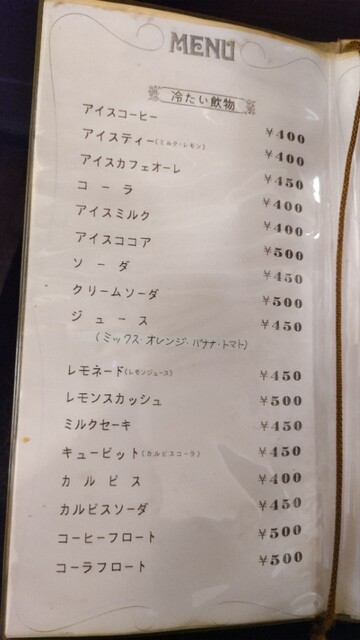 MENU
冷たい飲物
アイスコーヒー ¥400
アイスティー(ミルク・レモン) ¥400
アイスカフェオーレ ¥450
コーラ ¥400
アイスミルク ¥400
アイスココア ¥500
ソーダ ¥450
クリームソーダ ¥500
ジュース ¥450
(ミックス・オレンジ・バナナ・トマト)
レモネード(レモンジュース) ¥450
レモンスカッシュ ¥500
ミルクセーキ ¥450
キュービット(カルピスコーラ) ¥450
カルピス ¥400
カルピスソーダ ¥450
コーヒーフロート ¥500
コーラフロート ¥500